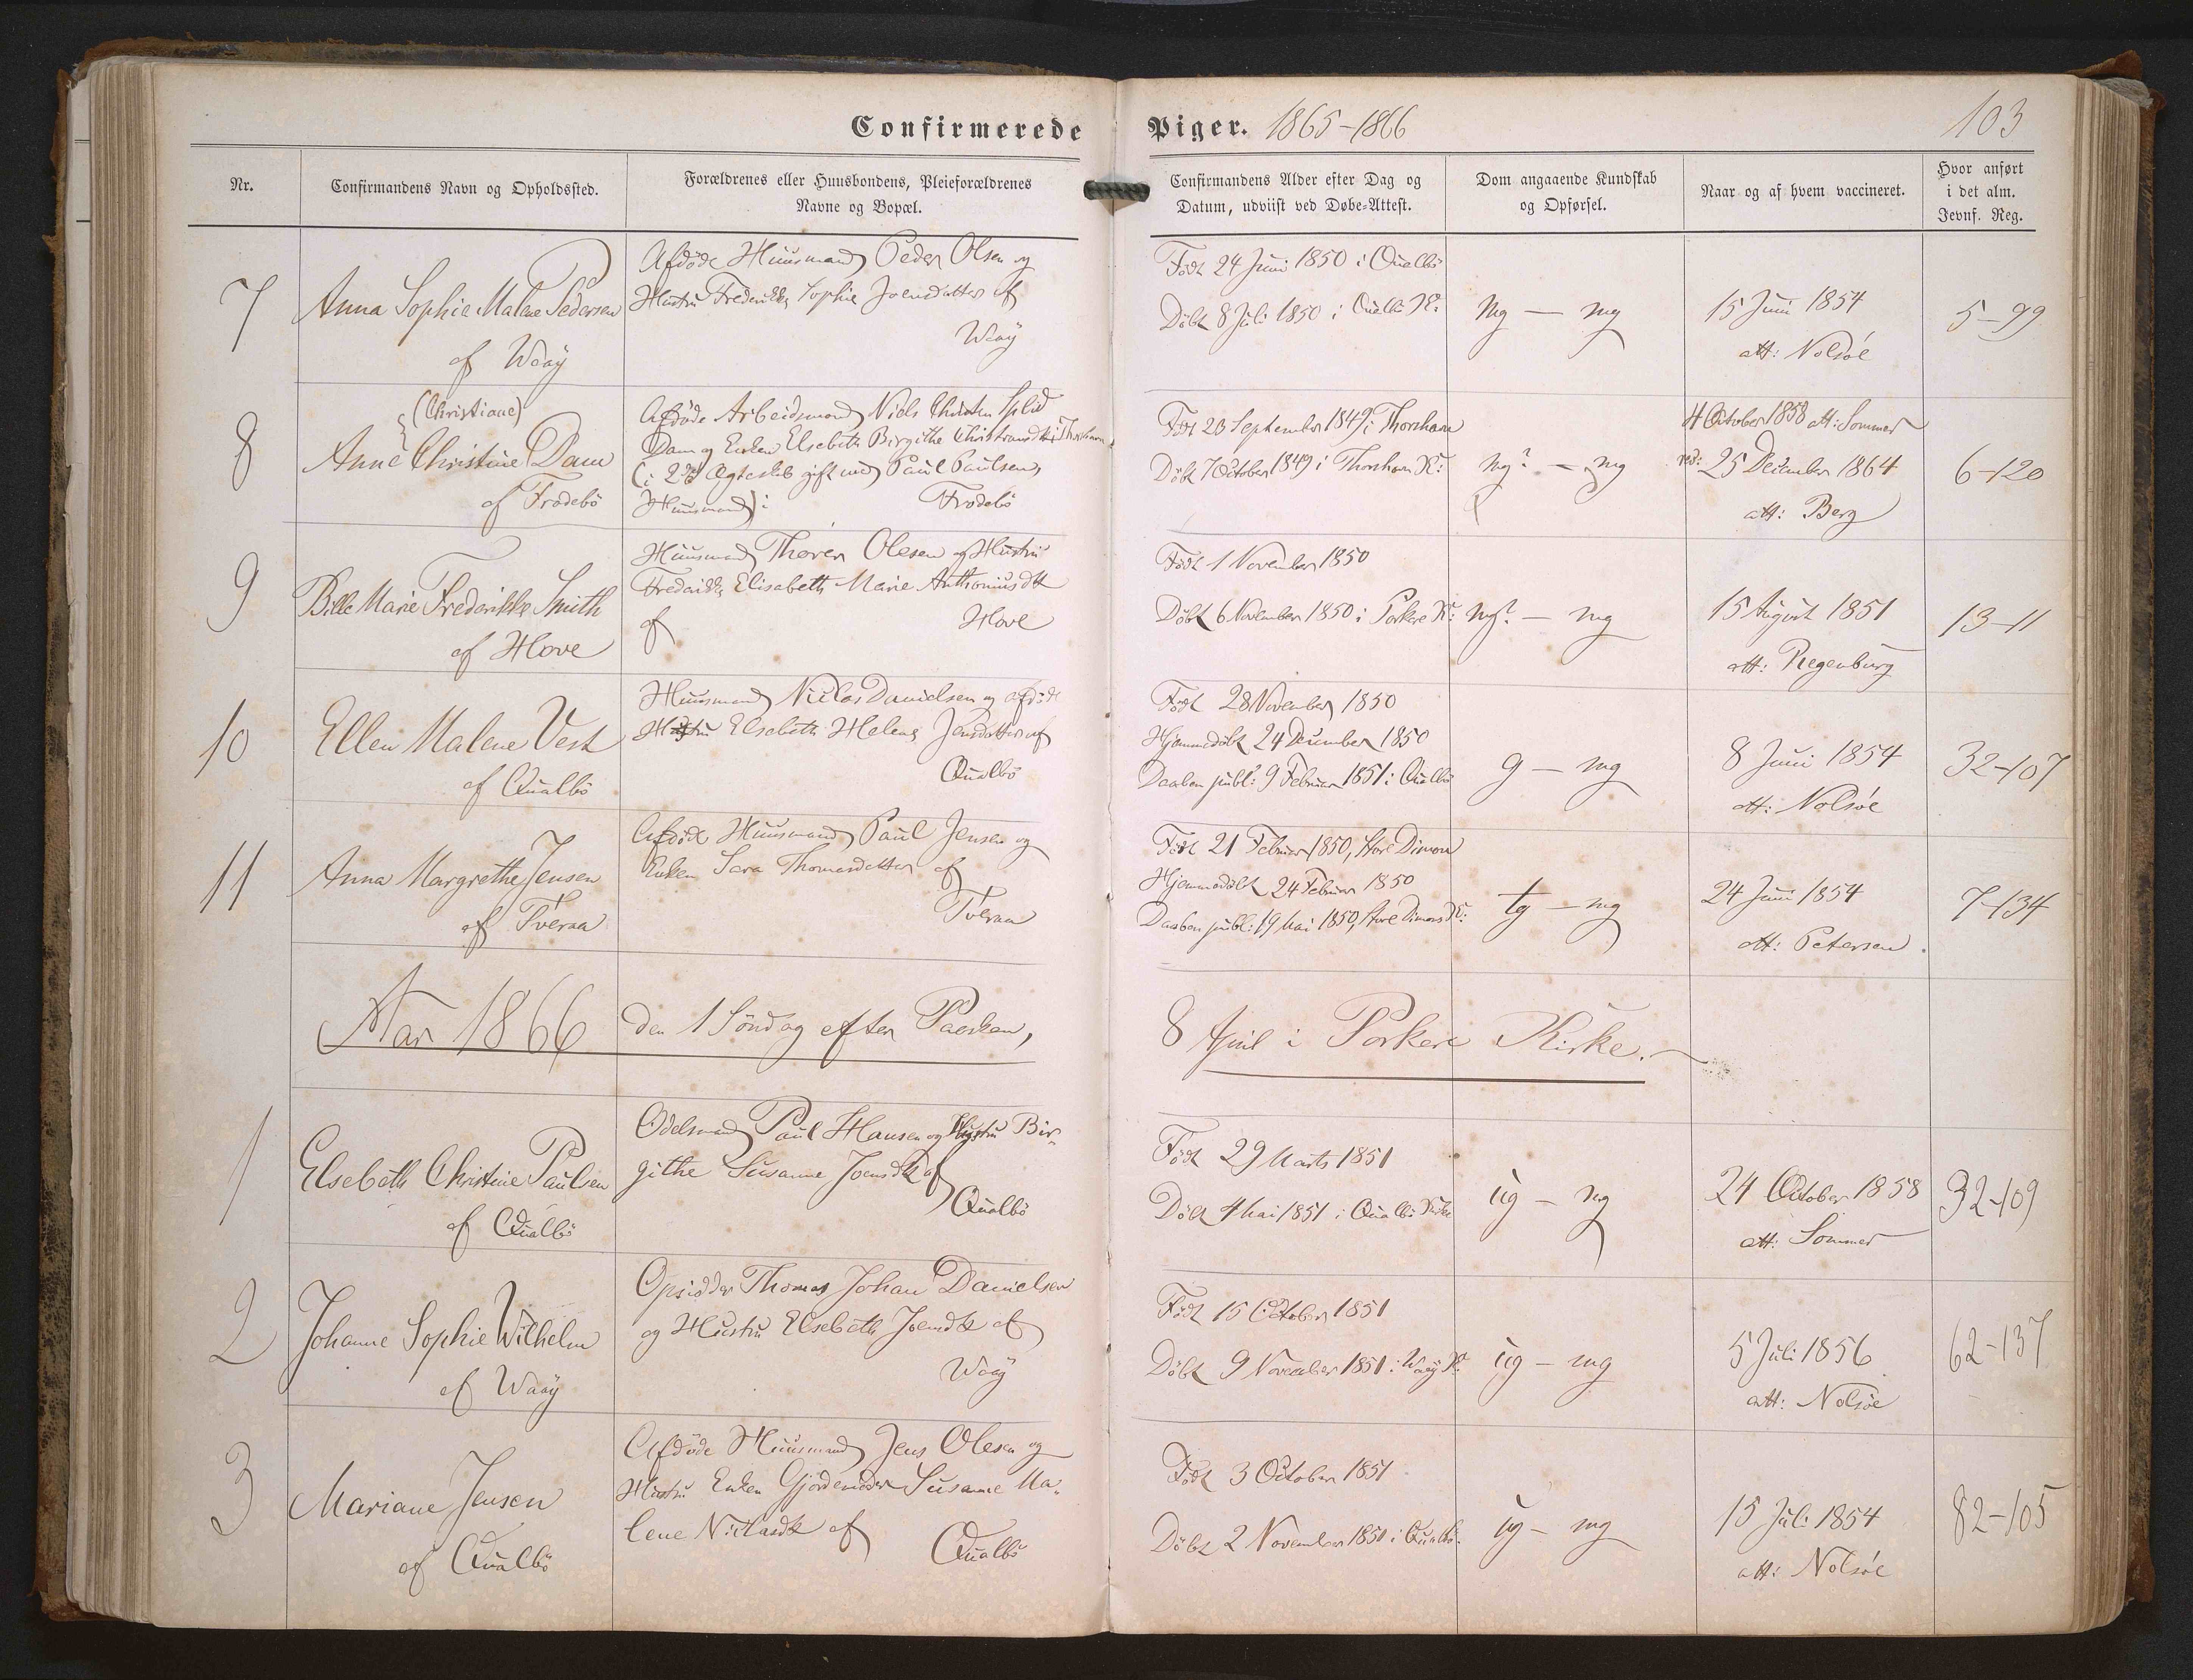 Confirmerede Piger. 1865-1866
103
Nr.
Confirmandens Navn og Opholdssted.
Forældrenes eller Huusbondens, Pleieforældrenes
Navne og Bopæl.
Confirmandens Alder efter Dag og
Datum, udviist ved Døbe-Attest.
Dom angaaende Kundskab
og Opførsel.
Naar og af hvem vaccineret.
Hvor anført
i det alm.
Jevnf. Reg.
7
Anna Sophie Malene Pedersen
af Waaÿ
Afdöde Huusmand Peder Olsen og
Hustru Frederikke Sophie Joensdatter af
Waaÿ
Født 24 Juni 1850 i Qualbö
Döbt 8 Juli 1850 i Qualbö K:
mg — mg
15 Juni 1854
att: Nolsöe
5-99
8
(Christiane)
Anne Christine Dam
af Frodebö
Afdöde Arbeidsmand Niels Christen Splid
Dam og Enken Elsebeth Birgithe Christiansdt i Thorshavn
(i 2det Ægteskab gift med Paul Paulsen,
Huusmand) i Frodebö
Født 23 September 1849 i Thorshavn
Döbt 7 October 1849 i Thorshavn K:
mg? — mg
4 October 1858 att: Sommer
red: 25 December 1864
att: Berg
6-120
9
Bille Marie Frederikke Smith
af Hove
Huusmand Thorer Olesen og Hustru
Frederikke Elisabeth Marie Anthoniusdt
af Hove
Født 1 November 1850
Döbt 6 November 1850 i Porkere K:
mg? — mg
15 August 1851
att: Regenburg
13-11
10
Ellen Malene Vest
af Qualbö
Huusmand Niclas Danielsen og afdöde
Hustru Elsebeth Helene Jensdatter af
Qualbö
Født 28 November 1850
Hjemmedöbt 24 December 1850
Daaben publ: 9 Februar 1851 i Qualbö
g — mg
8 Juni 1854
att: Nolsöe
32-107
11
Anna Margrethe Jensen
af Tveraa
Afdöde Huusmand Paul Jensen og
Enken Sara Thomasdatter af
Tveraa
Født 21 Februar 1850, Store Dimon
Hjemmedöbt 24 Februar 1850
Daaben publ: 19 Mai 1850, Store Dimons K:
tg — mg
24 Juni 1854
att: Petersen.
7-134
Aar 1866 den 1 Söndag efter Paasken, 8 April i Porkere Kirke.
1
Elsebeth Christine Paulsen
af Qualbö
Odelsmand Paul Hansen og Hustru Bir-
githe Susanne Joensdt af
Qualbö
Født 29 Marts 1851
Döbt 4 Mai 1851 i Qualbö Kirke
ug — mg
24 October 1858
att: Sommer
32-109
2
Johanne Sophie Wilhelm
af Waaÿ
Opsidder Thomas Johan Danielsen
og Hustru Elsebeth Joensdt af
Waaÿ
Født 15 October 1851
Döbt 9 November 1851 i Waaÿ K:
ug — mg
5 Juli 1856
att: Nolsöe
62-137
3
Mariane Jensen
af Qualbö
Afdöde Huusmand Jens Olesen og
Hustru Enken Gjordemoder Susanne Ma-
lene Niclasdt af
Qualbö
Født 3 October 1851
Döbt 2 November 1851 i Qualbö.
ug — mg
15 Juli 1854
att: Nolsöe
82-105